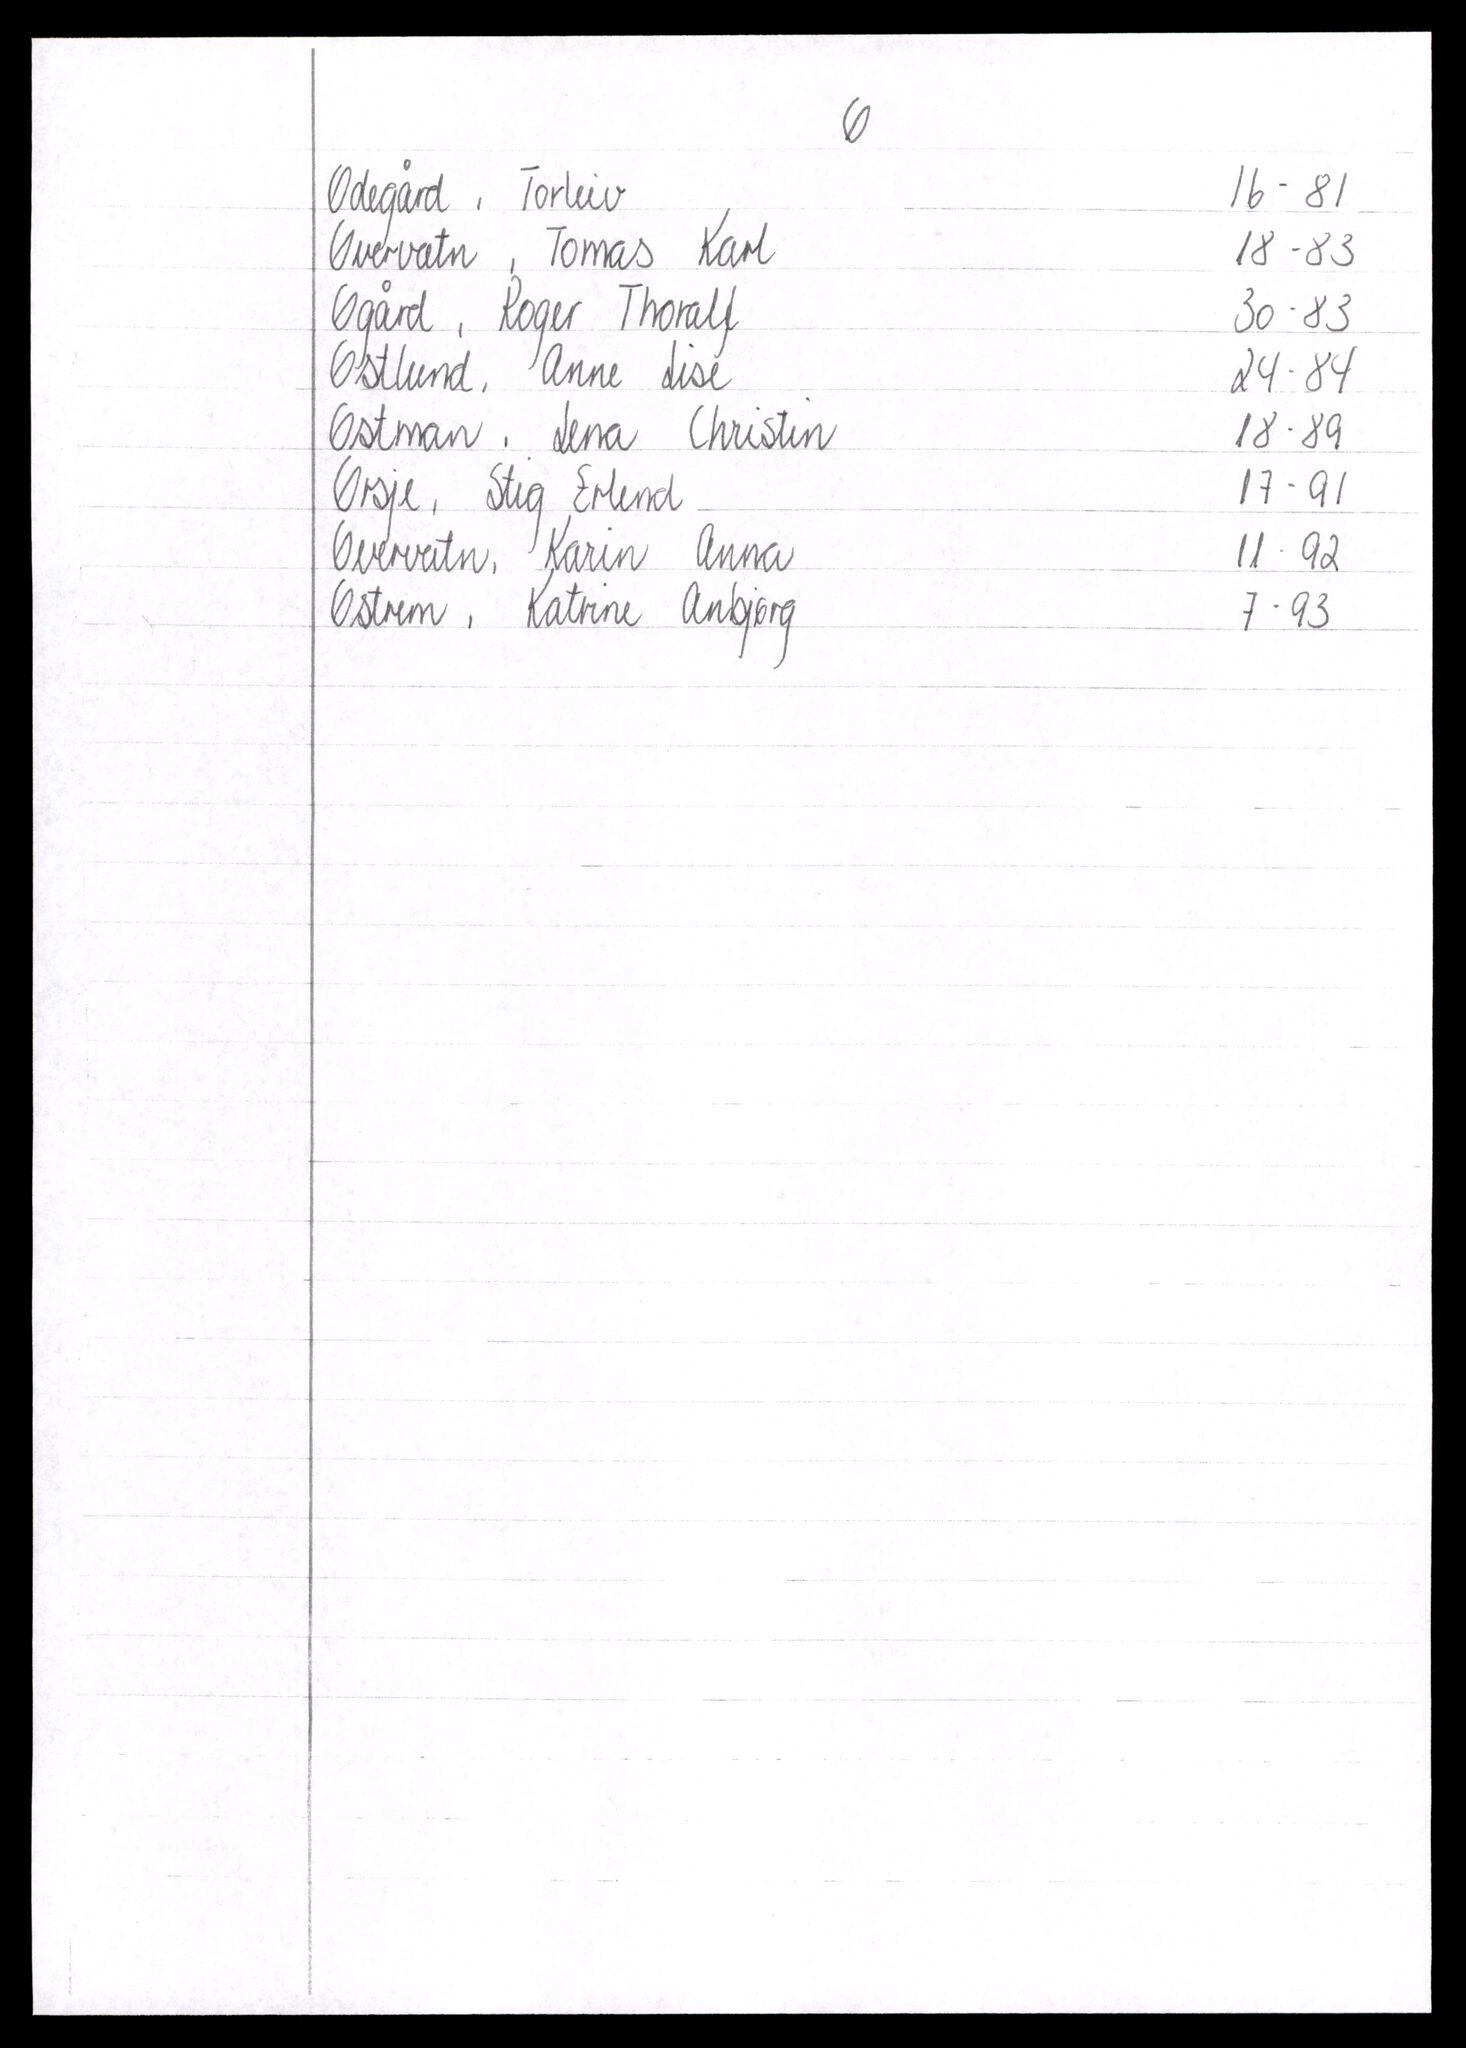 Ø
Ødegård, Torleiv 16-81
Øvervatn, Tomas Karl 18-83
Øgård, Roger Thoralf 30-83
Østlund, Anne Lise 24-84
Østman, Lena Christin 18-89
Ørsje, Stig Erlend 17-91
Øvervatn, Karin Anna 11-92
Østrem, Katrine Anbjørg 7-93